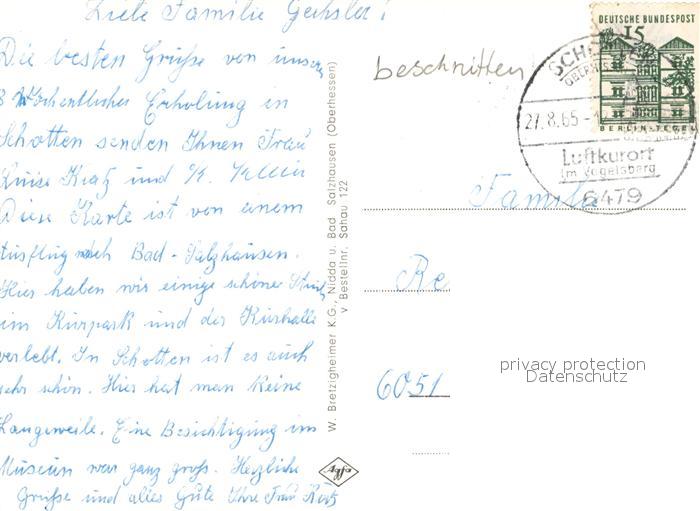 Liebe Familie
Die besten Grüße von unserer
8 Wöchentlicher Erholung in
Schotten senden Ihnen Frau
Luise Kratz und
Diese Karte ist von einem
Ausflug nach Bad-Salzhausen.
Hier haben wir einige schöne
im Kurpark und der Kurhalle
verlebt. In Schotten ist es auch
sehr schön. Hier hat man keine
Langeweile. Eine Besichtigung im
Museum war ganz groß. Herzliche
Grüße und alles Gute Ihre Frau
W. Bretzigheimer K.G., Nidda u. Bad Salzhausen (Oberhessen)
v Bestellnr. Sahau 122
Agfa
beschnitten
DEUTSCHE BUNDESPOST
15
BERLIN-TEGEL
27.8.65
Luftkurort
im Vogelsberg
6479
Familie
Re
6051
privacy protection
Datenschutz